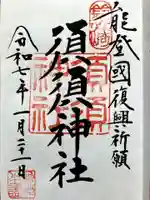 能登國復興祈願
須須神社
令和七年一月二十一日